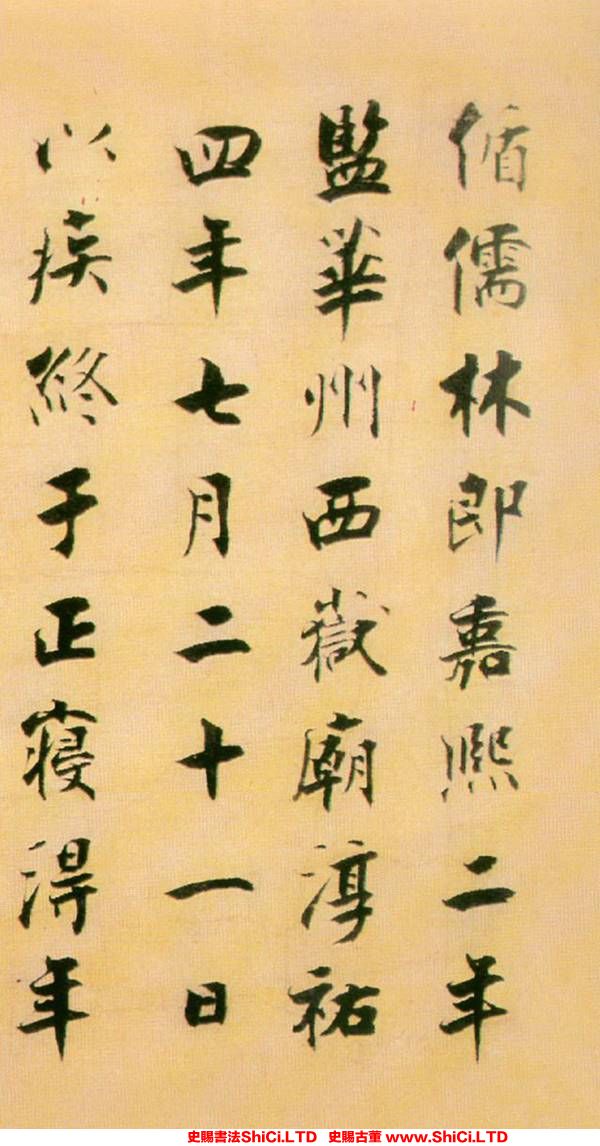 循儒林郎嘉熙二年
監華州西嶽廟淳祐
四年七月二十一日
以疾終于正寢得年
史賜書法ShiCi.LTD 史賜古董 www.ShiCi.LTD